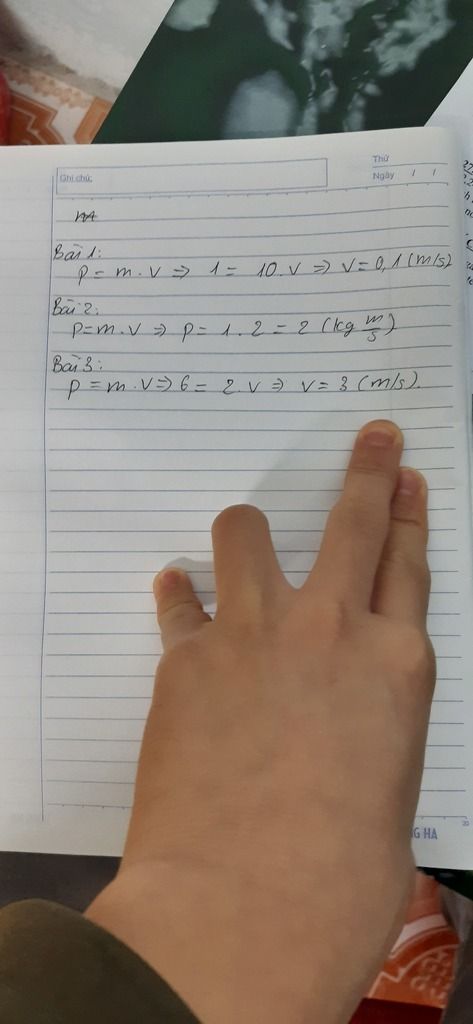 Ghi chú:
Thứ
Ngày / /
Bài 1:
p = m . v ⇒ 1 = 10 . v ⇒ v = 0,1 (m/s)
Bài 2:
p = m . v ⇒ p = 1 . 2 = 2 (kg m/s)
Bài 3:
p = m . v ⇒ 6 = 2 . v ⇒ v = 3 (m/s).
G HA